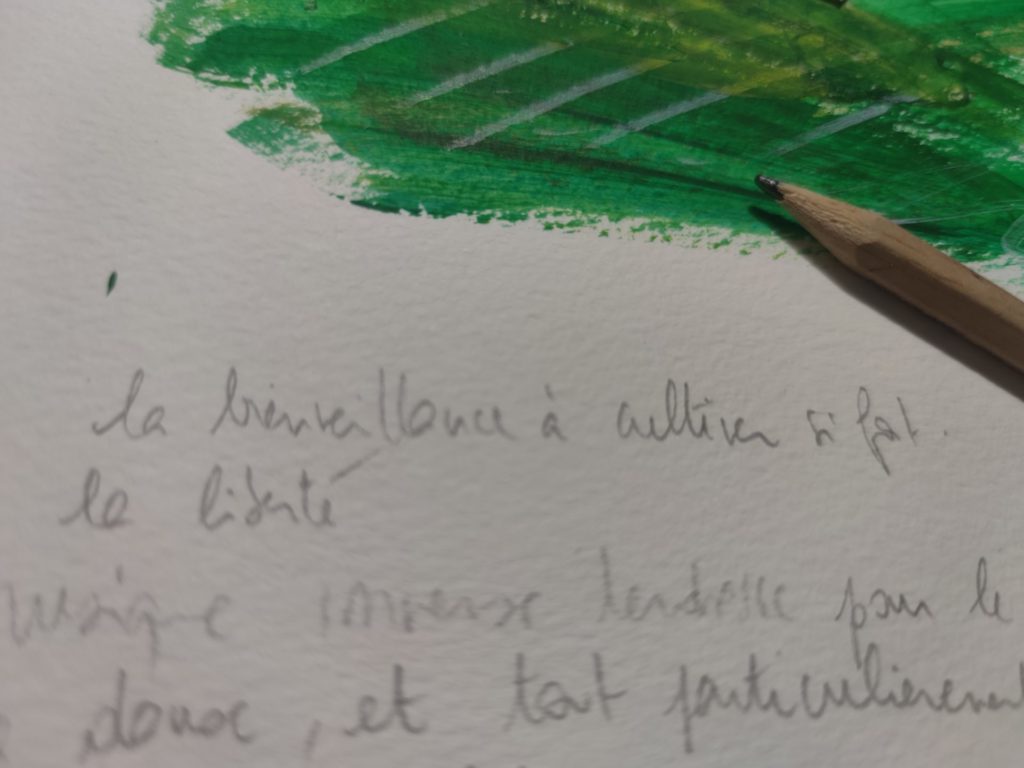 la bienveillance à cultiver si fort.
la liberté
musique immense tendresse pour le
douce, et tout particulièrement